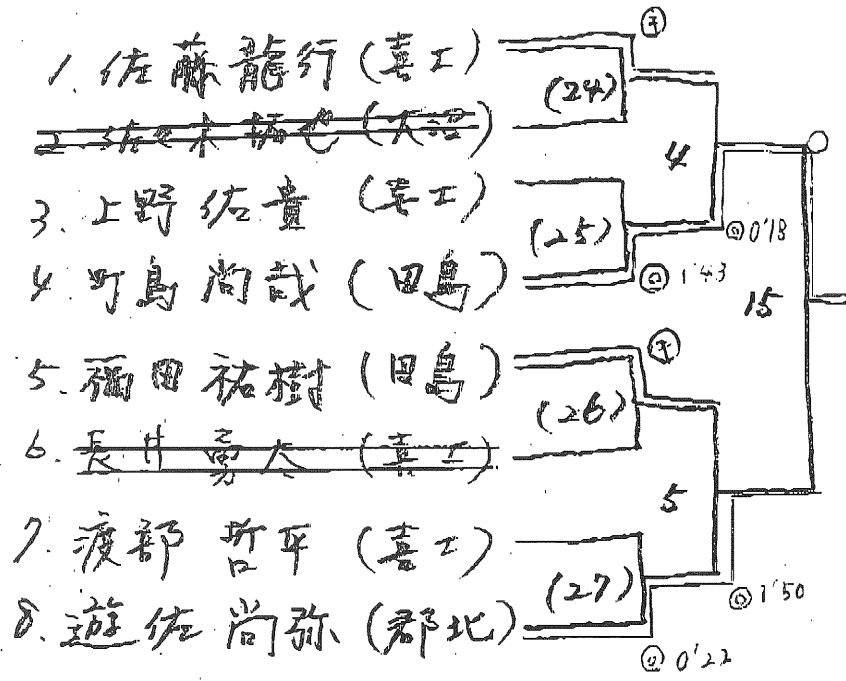 1. 佐藤龍行 (喜工)
3. 上野佑貴 (喜工)
4 町島尚哉 (田島)
5. 彌田祐樹 (田島)
6. 長井勇人 (喜工)
7. 渡部哲平 (喜工)
8. 遊佐尚弥 (郡北)
(24)
4
(25)
0'18
1'43
15
(26)
5
(27)
1'50
0'22